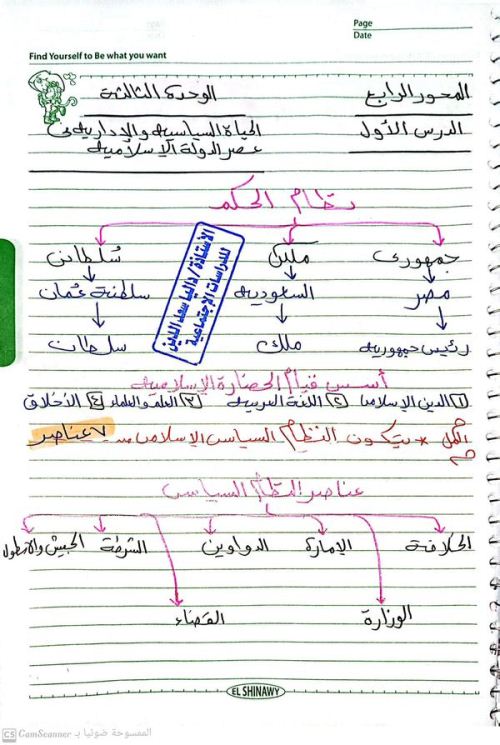 Page
Date
Find Yourself to Be what you want
المحور الرابع
الوحدة الثالثة
الدرس الأول
الحياة السياسية والإدارية فى
عصر الدولة الإسلامية
نظام الحكم
جمهورى
ملكى
سُلطانى
مصر
السعودية
سلطنة عُمان
رئيس جمهورية
ملك
سلطان
الأستاذة/داليا سعد الدين
للدراسات الإجتماعية
أسس قيام الحضارة الإسلامية
١) الدين الإسلامى ٢) اللغة العربية ٣) العلم والعلماء ٤) الأخلاق
* يتكون النظام السياسى الإسلامى من ٧ عناصر
عناصر النظام السياسى
الخلافة
الإمارة
الدواوين
الشرطة
الجيش والأسطول
الوزارة
القضاء
EL SHINAWY
CS CamScanner الممسوحة ضوئيا بـ